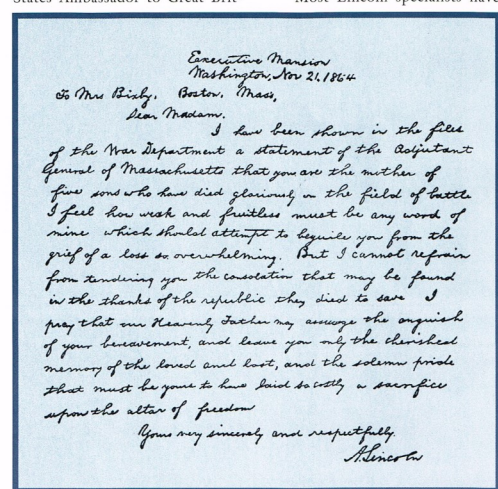 States Ambassador to Great Brit-
Most Lincoln specialists have
Executive Mansion
Washington, Nov 21, 1864
To Mrs Bixby, Boston, Mass,
Dear Madam.
I have been shown in the files
of the War Department a statement of the Adjutant
General of Massachusetts that you are the mother of
five sons who have died gloriously on the field of battle
I feel how weak and fruitless must be any word of
mine which should attempt to beguile you from the
grief of a loss so overwhelming. But I cannot refrain
from tendering you the consolation that may be found
in the thanks of the republic they died to save I
pray that our Heavenly Father may assuage the anguish
of your bereavement, and leave you only the cherished
memory of the loved and lost, and the solemn pride
that must be yours to have laid so costly a sacrifice
upon the altar of freedom
Yours very sincerely and respectfully.
A. Lincoln